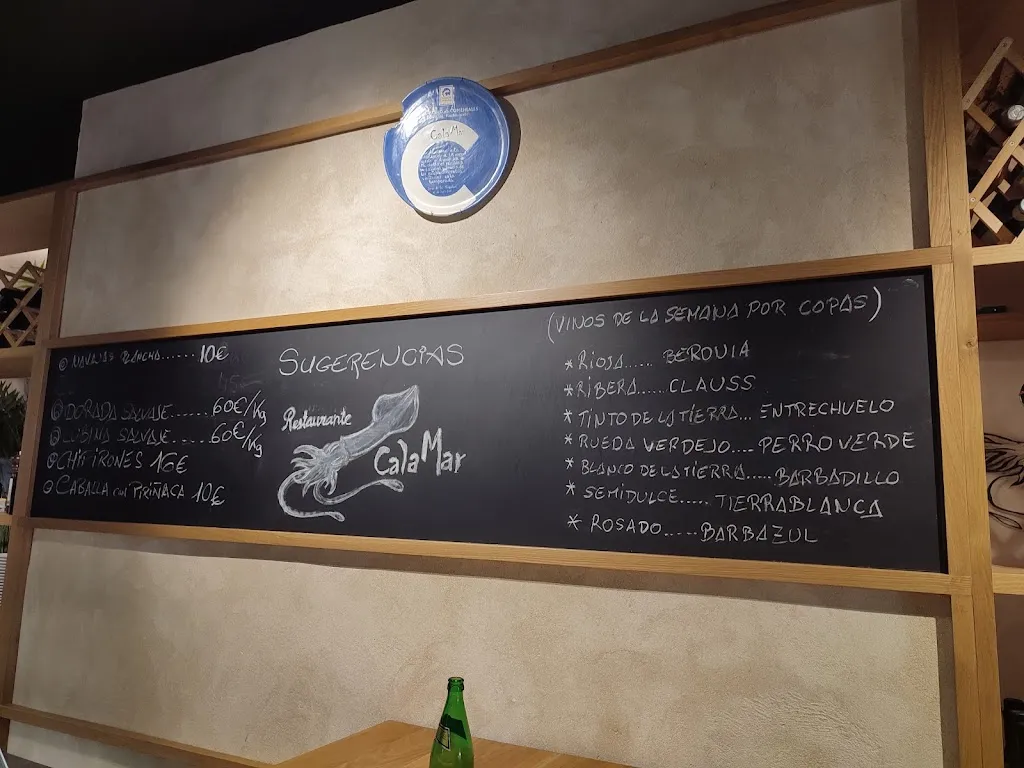 CalaMar
NAVAJAS PLANCHA...... 10€
DORADA SALVAJE...... 60€/kg
LUBINA SALVAJE...... 60€/kg
CHIPIRONES 16€
CABALLA con PIRIÑACA 10€
SUGERENCIAS
Restaurante
CalaMar
(VINOS DE LA SEMANA POR COPAS)
* RIOJA..... BERONIA
* RIBERA..... CLAUSS
* TINTO DE LA TIERRA... ENTRECHUELO
* RUEDA VERDEJO.... PERRO VERDE
* BLANCO DE LA TIERRA..... BARBADILLO
* SEMIDULCE..... TIERRA BLANCA
* ROSADO..... BARBAZUL